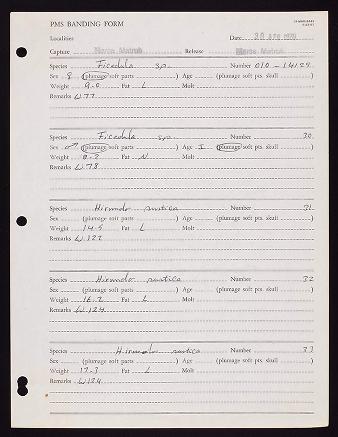 PMS BANDING FORM
Localities Date 30 APR 1970
Capture Mersa Matruh Release Mersa Matruh
Species Ficedula sp. Number 010 - 14129
Sex ♀ (plumage soft parts ) Age (plumage soft pts. skull )
Weight 9.0 Fat L Molt
Remarks W77
Species Ficedula sp. Number 30
Sex ♂ (plumage soft parts ) Age I (plumage soft pts. skull )
Weight 8.2 Fat N Molt
Remarks W78
Species Hirundo rustica Number 31
Sex (plumage soft parts ) Age (plumage soft pts. skull )
Weight 14.5 Fat L Molt
Remarks W122
Species Hirundo rustica Number 32
Sex (plumage soft parts ) Age (plumage soft pts. skull )
Weight 16.2 Fat L Molt
Remarks W124
Species Hirundo rustica Number 33
Sex (plumage soft parts ) Age (plumage soft pts. skull )
Weight 17.3 Fat L Molt
Remarks W124